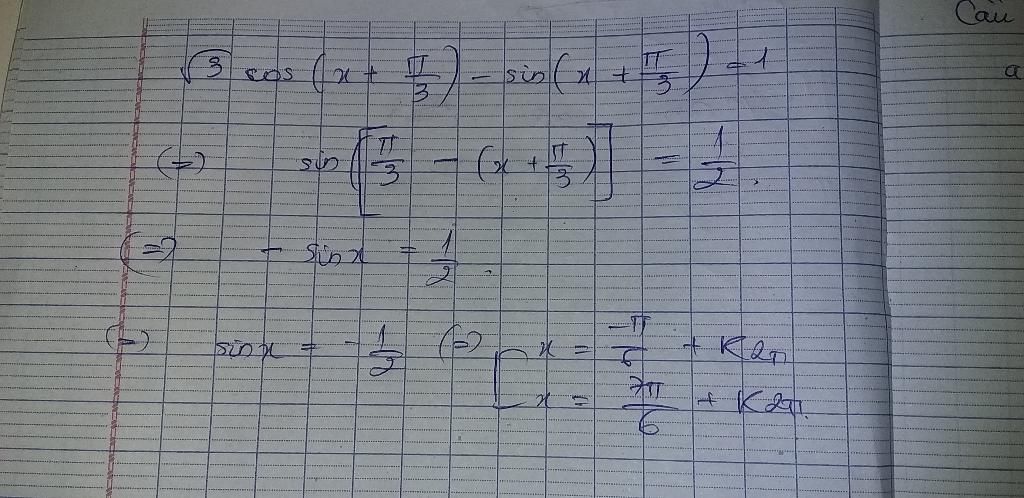 Câu
a
√3 cos(x + π/3) - sin(x + π/3) = 1
(=) sin[π/3 - (x + π/3)] = 1/2.
(=) - sinx = 1/2.
(=) sinx = - 1/2 (=) [ x = -π/6 + K2π
x = 7π/6 + K2π.